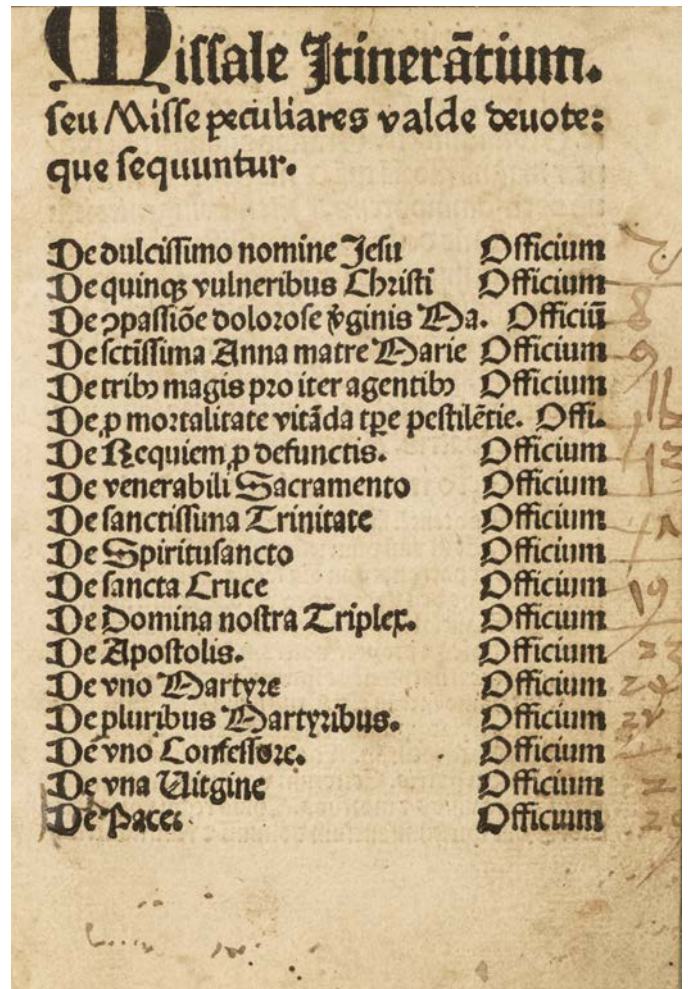 Missale Itinerãtium.
seu Misse peculiares valde deuote:
que sequuntur.
De dulcissimo nomine Jesu Officium
De quinqȝ vulneribus Christi Officium
De ↄpassiõe dolorose v̾ginis Ma. Officiũ 8
De sctissima Anna matre Marie Officium 9
De tribꝰ magis pro iter agentibꝰ Officium
De ꝓ mortalitate vitãda tp̃e pestilẽtie. Offi.
De Requiem ꝓ defunctis. Officium
De venerabili Sacramento Officium
De sanctissima Trinitate Officium
De Spiritusancto Officium
De sancta Cruce Officium 19
De Domina nostra Triplex. Officium
De Apostolis. Officium 23
De vno Martyre Officium 24
De pluribus Martyribus. Officium
De vno Confessore. Officium
De vna Uitgine Officium
De Pace. Officium